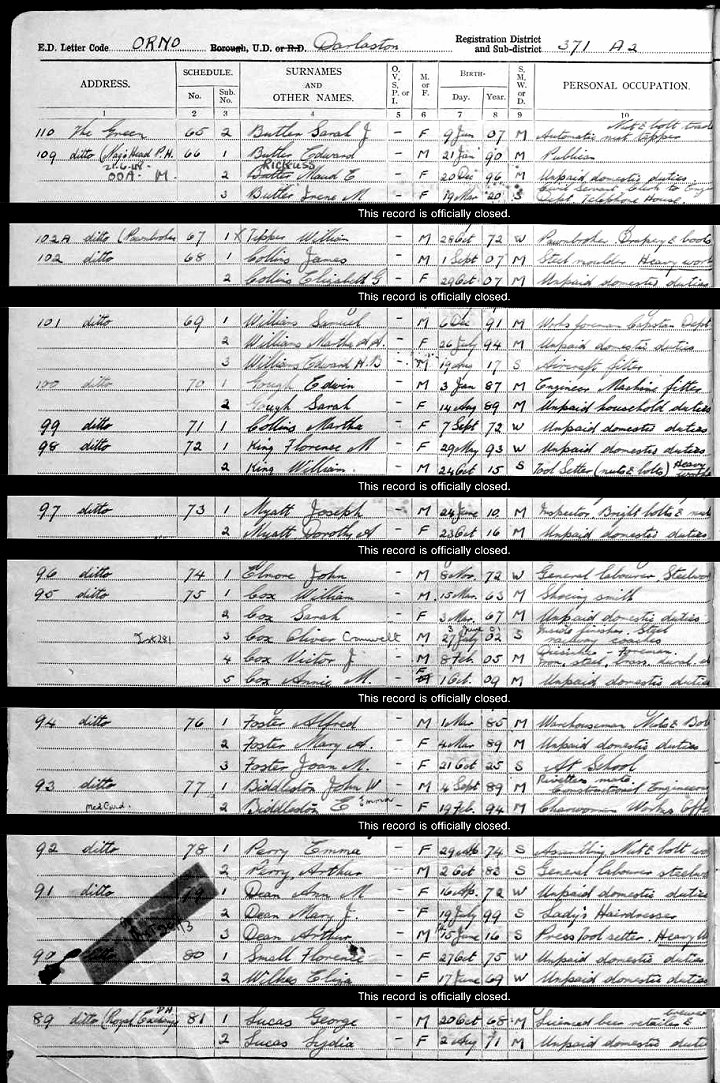 E.D. Letter Code ORNO Borough, U.D. or R.D. Darlaston Registration District and Sub-district 371 A2
ADDRESS. SCHEDULE. No. Sub. No. SURNAMES AND OTHER NAMES. O, V, S, P, or I. M. or F. BIRTH- Day. Year. S. M, W, or D. PERSONAL OCCUPATION.
1 2 3 4 5 6 7 8 9 10
110 The Green 65 2 Butler Sarah J – F 9 Jun 07 M Automatic nut Tapper Nut & bolt trade
109 ditto (Nags Head P.H. 66 1 Butler Edward – M 21 Jan 90 M Publican
OOA M. 2 Butler Maud E – F 20 Dec 96 M Unpaid domestic duties
Rickuss
3 Butler Irene M – F 19 Mar 20 S Civil Servant, Clerk to Eng Dept. Telephone House.
This record is officially closed.
102A ditto (Pawnbroker 67 1 X Tepper William – M 28 Oct 72 W Pawnbroker Drapery & boots
102 ditto 68 1 Collins James – M 1 Sept 07 M Steel moulder Heavy work
2 Collins Elizabeth G – F 29 Oct 07 M Unpaid domestic duties
This record is officially closed.
101 ditto 69 1 Williams Samuel – M 6 Dec 91 M Works foreman Capstan Dept
2 Williams Martha – F 26 July 94 M Unpaid domestic duties
3 Williams Edward H.B – M 19 Aug 17 S Aircraft fitter
100 ditto 70 1 Gough Edwin – M 3 Jan 87 M Engineer Machine fitter
2 Gough Sarah – F 14 Aug 89 M Unpaid household duties
99 ditto 71 1 Collins Martha – F 7 Sept 72 W Unpaid domestic duties
98 ditto 72 1 King Florence M – F 29 May 93 W Unpaid domestic duties
2 King William – M 24 Oct 15 S Tool Setter (nuts & bolts) Heavy
This record is officially closed.
97 ditto 73 1 Myatt Joseph – M 24 June 10 M Inspector, Bright bolts & nuts
2 Myatt Dorothy A – F 23 Oct 16 M Unpaid domestic duties
This record is officially closed.
96 ditto 74 1 Elmore John – M 8 Nov. 72 W General labourer Steelwor
95 ditto 75 1 Cox William – M 15 Mar. 63 M Shoeing smith
2 Cox Sarah – F 3 Mar. 67 M Unpaid domestic duties
3 Cox Oliver Cromwell – M 27 July 02 S Inside finisher. Steel railway coaches
4 Cox Victor J – M 8 Feb. 05 M
5 Cox Annie M. – F 1 Oct. 09 M Unpaid domestic duties
This record is officially closed.
94 ditto 76 1 Foster Alfred – M 1 Mar 85 M Warehouseman Nuts & Bol
2 Foster Mary A. – F 4 Mar 89 M Unpaid domestic duties
3 Foster Joan M. – F 21 Oct 25 S At School
93 ditto 77 1 Biddleston John W – M 4 Sept 89 M Rivetters mate. Constructional Engineering
Med Card. 2 Biddleston E Emma – F 19 Feb. 94 M Charwoman Works Offi
This record is officially closed.
92 ditto 78 1 Perry Emma – F 29 Ap. 74 S Assembling Nut & bolt wo
2 Perry Arthur – M 2 Oct 83 S General labourer steelwo
91 ditto 79 1 Dean Ann M. – F 16 Ap. 72 W Unpaid domestic duties
2 Dean Mary J. – F 19 July 99 S Lady's Hairdresser
3 Dean Arthur – M 15 June 16 S Press tool setter. Heavy W
90 ditto 80 1 Small Florence – F 27 Oct 75 W Unpaid domestic duties
2 Wilkes Eliza – F 17 June 69 W Unpaid domestic duties
This record is officially closed.
89 ditto (Royal Exchange P.H 81 1 Lucas George – M 20 Oct 68 M Licenced beer retailer &
2 Lucas Lydia – F 2 Aug 71 M Unpaid domestic duti